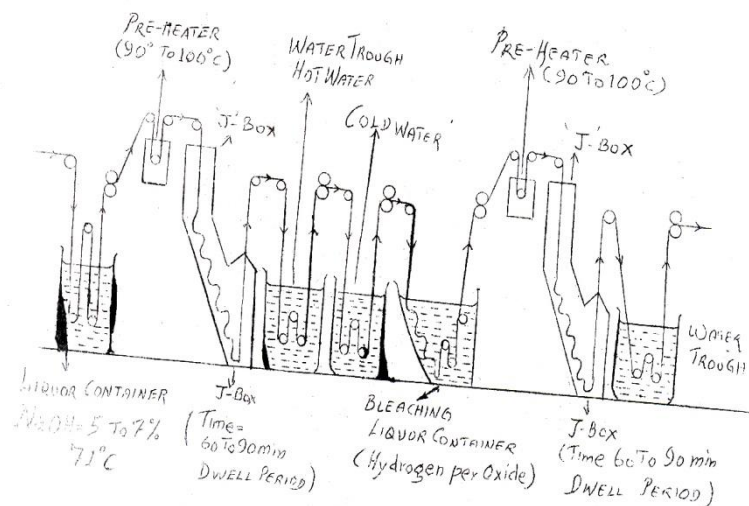 PRE-HEATER
(90° To 100°C)
'J'-Box
WATER TROUGH
HOT WATER
COLD WATER
PRE-HEATER
(90 To 100°C)
'J'-Box
LIQUOR CONTAINER
NaOH = 5 To 7%
71°C
J-Box
(Time =
60 To 90 min
DWELL PERIOD)
BLEACHING
LIQUOR CONTAINER
(Hydrogen per Oxide)
J-Box
(Time 60 To 90 min
DWELL PERIOD)
WATER
TROUGH